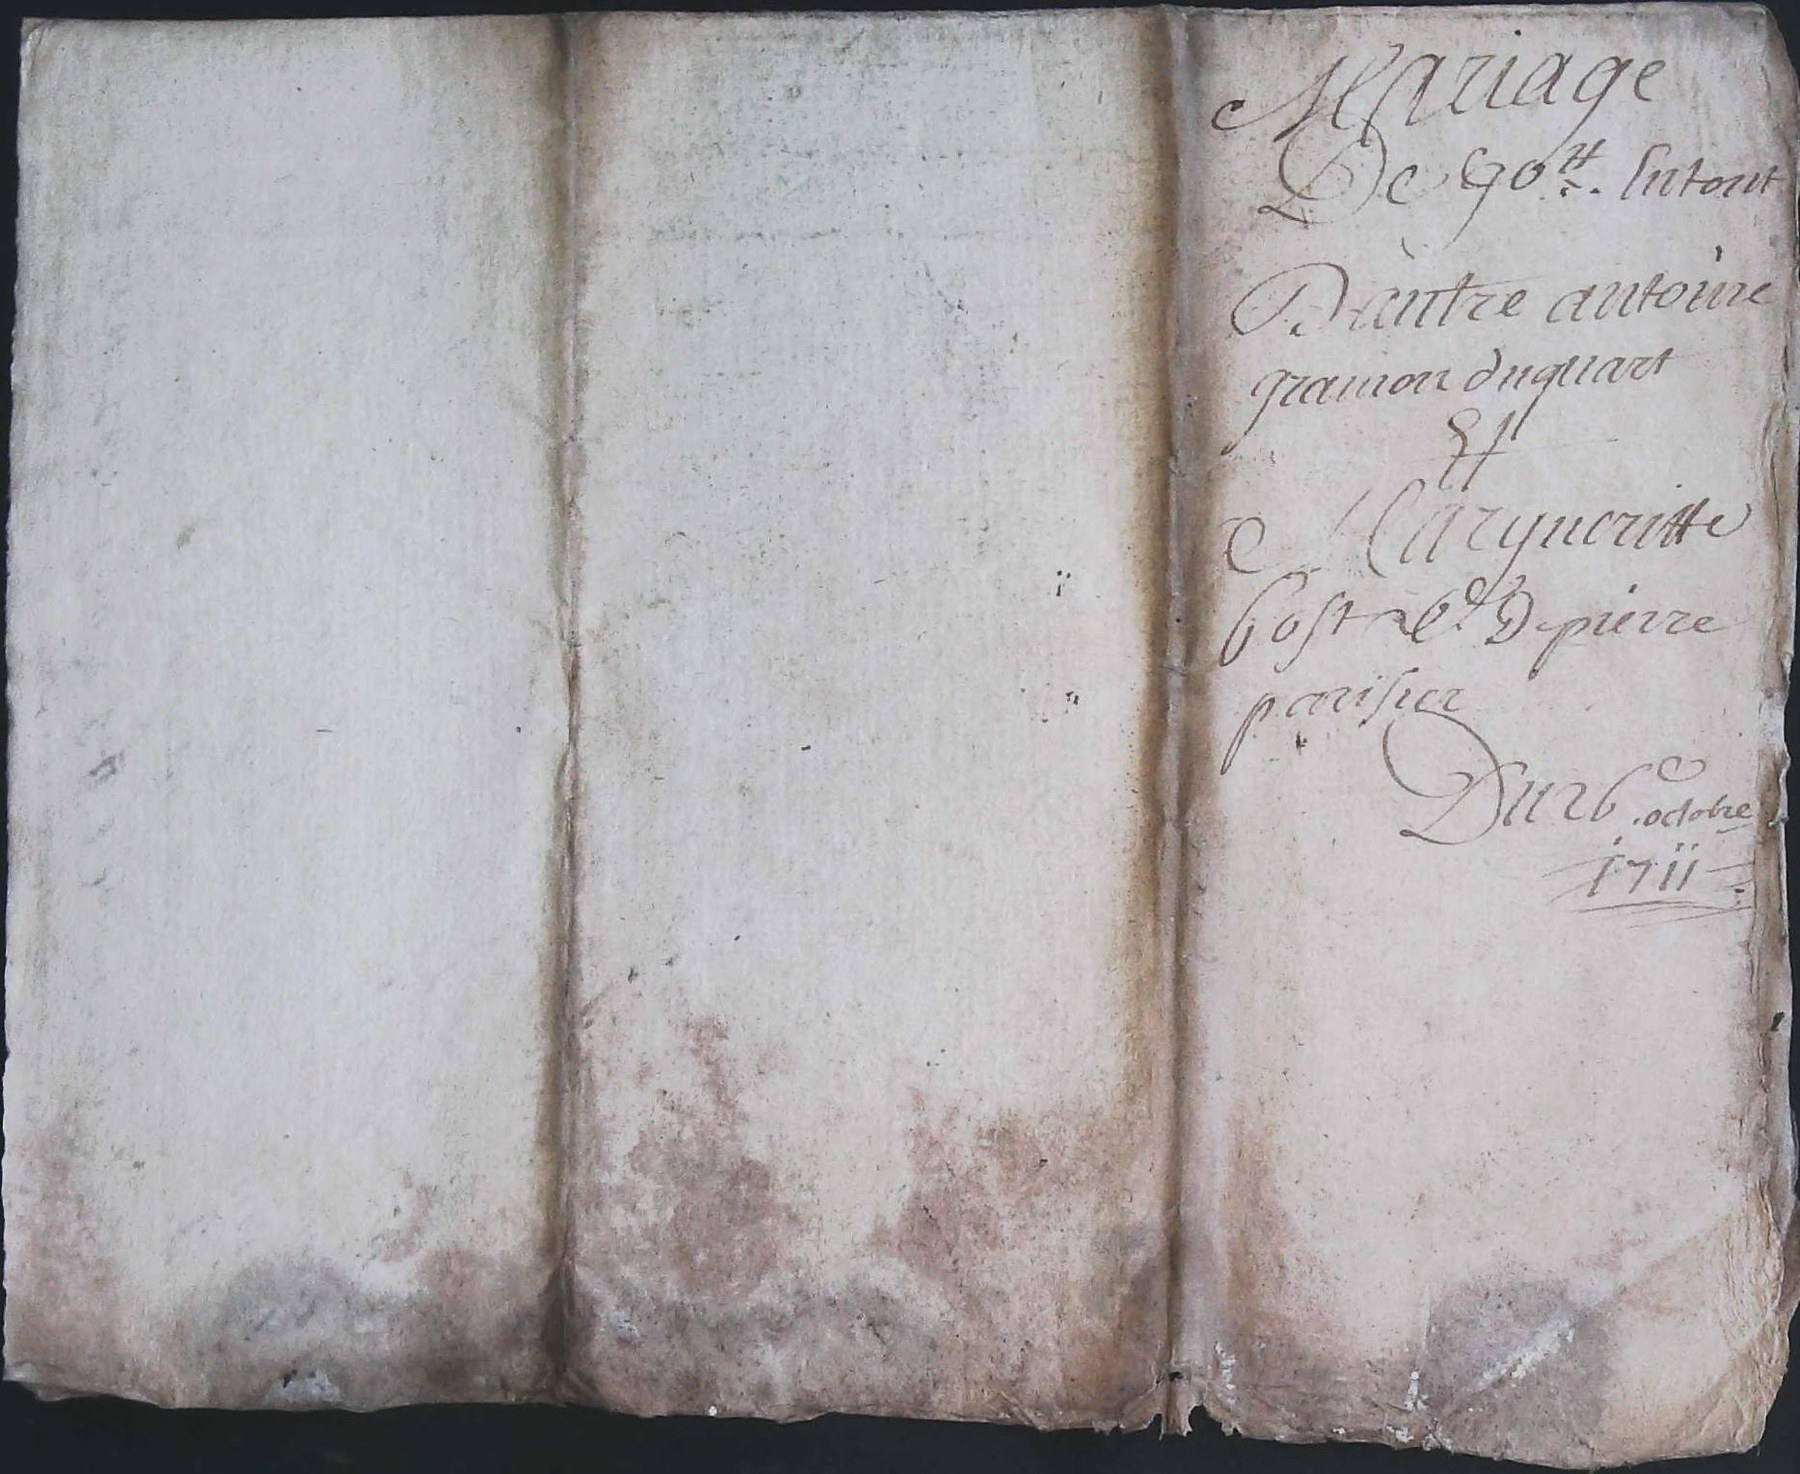 Mariage
De 90tt. Entout
D'antre antoine
gramon duquart
Et
Margueritte
bost De pierre
parisier
Du 26e octobre
1711